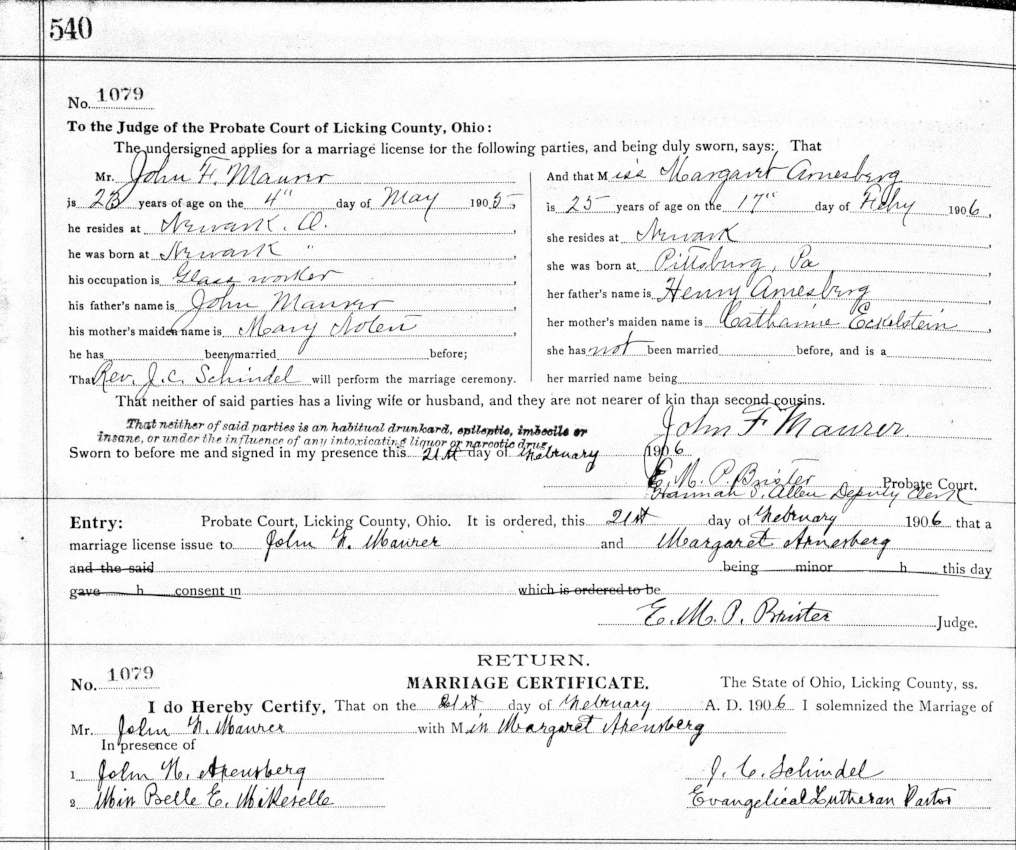 540
No. 1079
To the Judge of the Probate Court of Licking County, Ohio:
The undersigned applies for a marriage license for the following parties, and being duly sworn, says: That
Mr. John F. Maurer
is 23 years of age on the 4" day of May 1905,
he resides at Newark. O.
he was born at Newark "
his occupation is Glass worker
his father's name is John Maurer
his mother's maiden name is Mary Nolen
he has been married before;
That Rev. J. C. Schindel will perform the marriage ceremony.
And that Miss Margaret Arnesberg
is 25 years of age on the 17" day of Feby 1906,
she resides at Newark
she was born at Pittsburg, Pa
her father's name is Henry Arnesberg
her mother's maiden name is Catharine Eckelstein
she has not been married before, and is a
her married name being
That neither of said parties has a living wife or husband, and they are not nearer of kin than second cousins.
That neither of said parties is an habitual drunkard, epileptic, imbecile or
insane, or under the influence of any intoxicating liquor or narcotic drug.
John F Maurer
Sworn to before me and signed in my presence this 21st day of February 1906
E. M. P. Brister Probate Court.
Hannah S. Allen Deputy Clerk
Entry: Probate Court, Licking County, Ohio. It is ordered, this 21st day of February 1906 that a
marriage license issue to John F. Maurer and Margaret Arnesberg
and the said being minor h this day
gave h consent in which is ordered to be
E. M. P. Brister Judge.
RETURN.
No. 1079 MARRIAGE CERTIFICATE. The State of Ohio, Licking County, ss.
I do Hereby Certify, That on the 21st day of February A. D. 1906 I solemnized the Marriage of
Mr. John F. Maurer with Miss Margaret Arensberg
In presence of
1 John H. Arensberg
2 Miss Belle E. Mikeselle
J. C. Schindel
Evangelical Lutheran Pastor